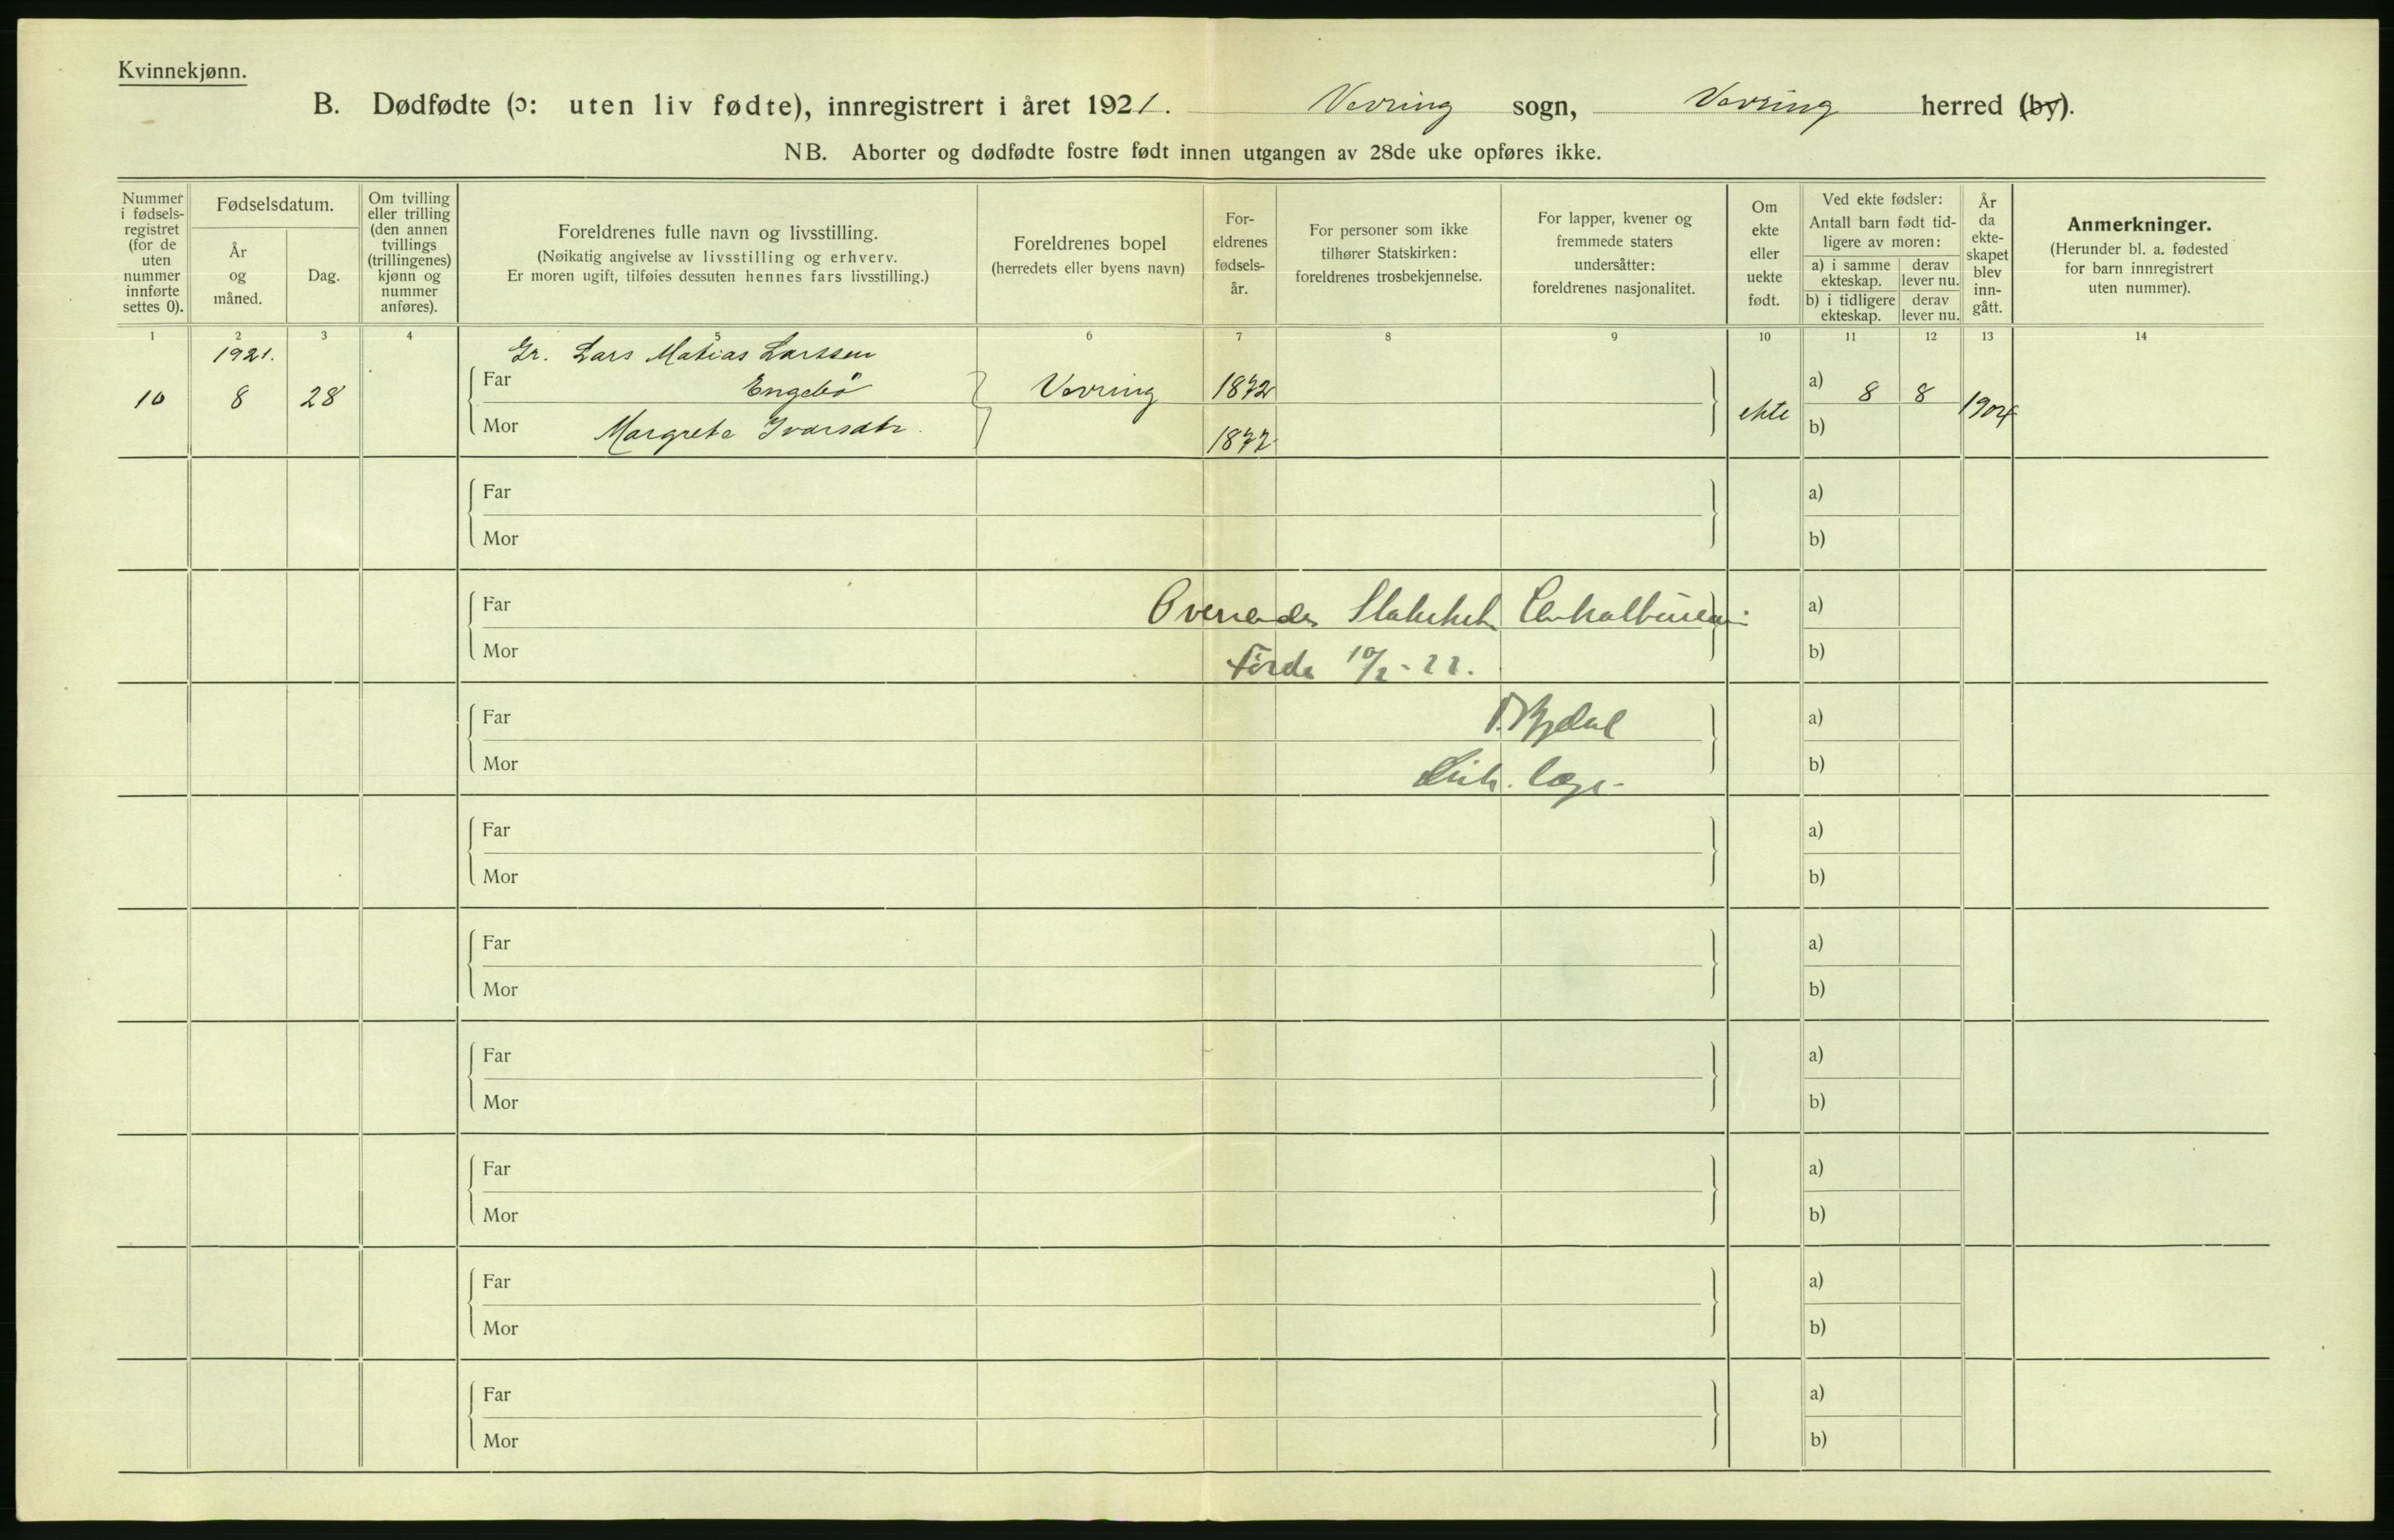 Kvinnekjønn.
B. Dødfødte (ɔ: uten liv fødte), innregistrert i året 1921. Vevring sogn, Vevring herred (by).
NB. Aborter og dødfødte fostre født innen utgangen av 28de uke opføres ikke.
Nummer i fødsels-registret (for de uten nummer innførte settes 0).
Fødselsdatum.
År og måned.
Dag.
Om tvilling eller trilling (den annen tvillings (trillingenes) kjønn og nummer anføres).
Foreldrenes fulle navn og livsstilling.
(Nøikatig angivelse av livsstilling og erhverv.
Er moren ugift, tilføies dessuten hennes fars livsstilling.)
Foreldrenes bopel
(herredets eller byens navn)
For-eldrenes fødsels-år.
For personer som ikke tilhører Statskirken: foreldrenes trosbekjennelse.
For lapper, kvener og fremmede staters undersåtter: foreldrenes nasjonalitet.
Om ekte eller uekte født.
Ved ekte fødsler:
Antall barn født tid-ligere av moren:
a) i samme ekteskap.
derav lever nu.
b) i tidligere ekteskap.
derav lever nu.
År da ekte-skapet blev inn-gått.
Anmerkninger.
(Herunder bl. a. fødested for barn innregistrert uten nummer).
1 2 3 4 5 6 7 8 9 10 11 12 13 14
1921.
Gr. Lars Matias Larssen
10 8 28 Far Engebö Vevring 1872 ekte a) 8 8 1904
Mor Margreta Ivarsdtr. 1872 b)
Far a)
Mor b)
Far Oversendes Statistisk Centralbureau. a)
Mor Förde 10/2-22. b)
Far a)
Mor læge b)
Far a)
Mor b)
Far a)
Mor b)
Far a)
Mor b)
Far a)
Mor b)
Far a)
Mor b)
Far a)
Mor b)